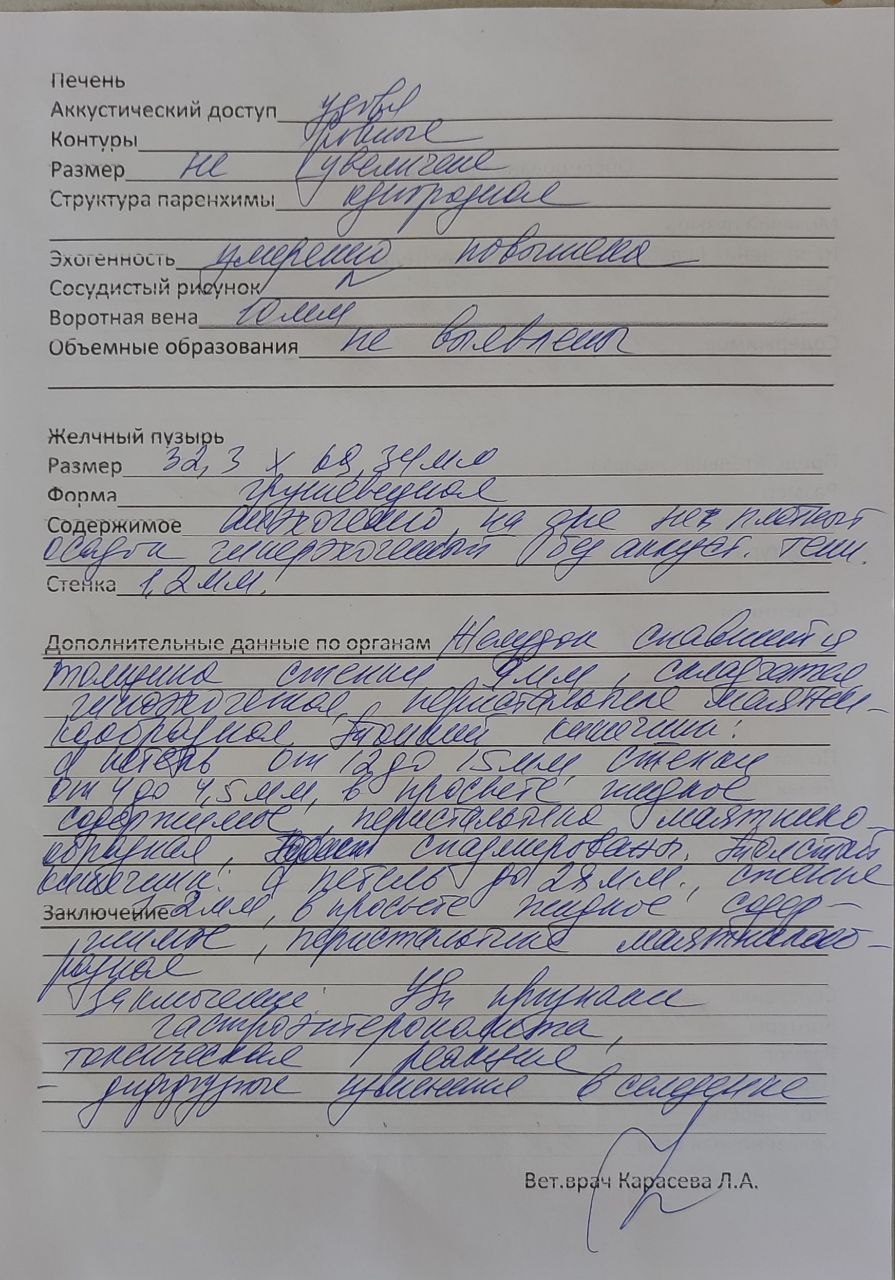 Печень
Аккустический доступ удовл
Контуры ровные
Размер не увеличена
Структура паренхимы однородная
Эхогенность умеренно повышена
Сосудистый рисунок N
Воротная вена 10 мм
Объемные образования не выявлены
Желчный пузырь
Размер 32,3 х 69,34мм
Форма грушевидная
Содержимое анэхогенно, на дне плотный
осадок гиперэхогенный без аккуст. тени.
Стенка 1,2 мм.
Дополнительные данные по органам Желудок спавшийся
толщина стенки 9мм, складчатая
гипоэхогенная, перистальтика маятни-
кообразная, Тонкий кишечник:
d петель от 12 до 15мм, стенки
от 4 до 4,5мм, в просвете жидкое
содержимое, перистальтика маятнико
образная, спазмированы. Толстый
кишечник: d петель до 28мм., стенка
Заключение 2мм, в просвете жидкое содер-
жимое, перистальтика маятникооб-
разная
Заключение: УЗИ признаки
гастроэнтероколита,
токсическая реакция,
- диффузные изменения в селезенке
Вет.врач Карасева Л.А.